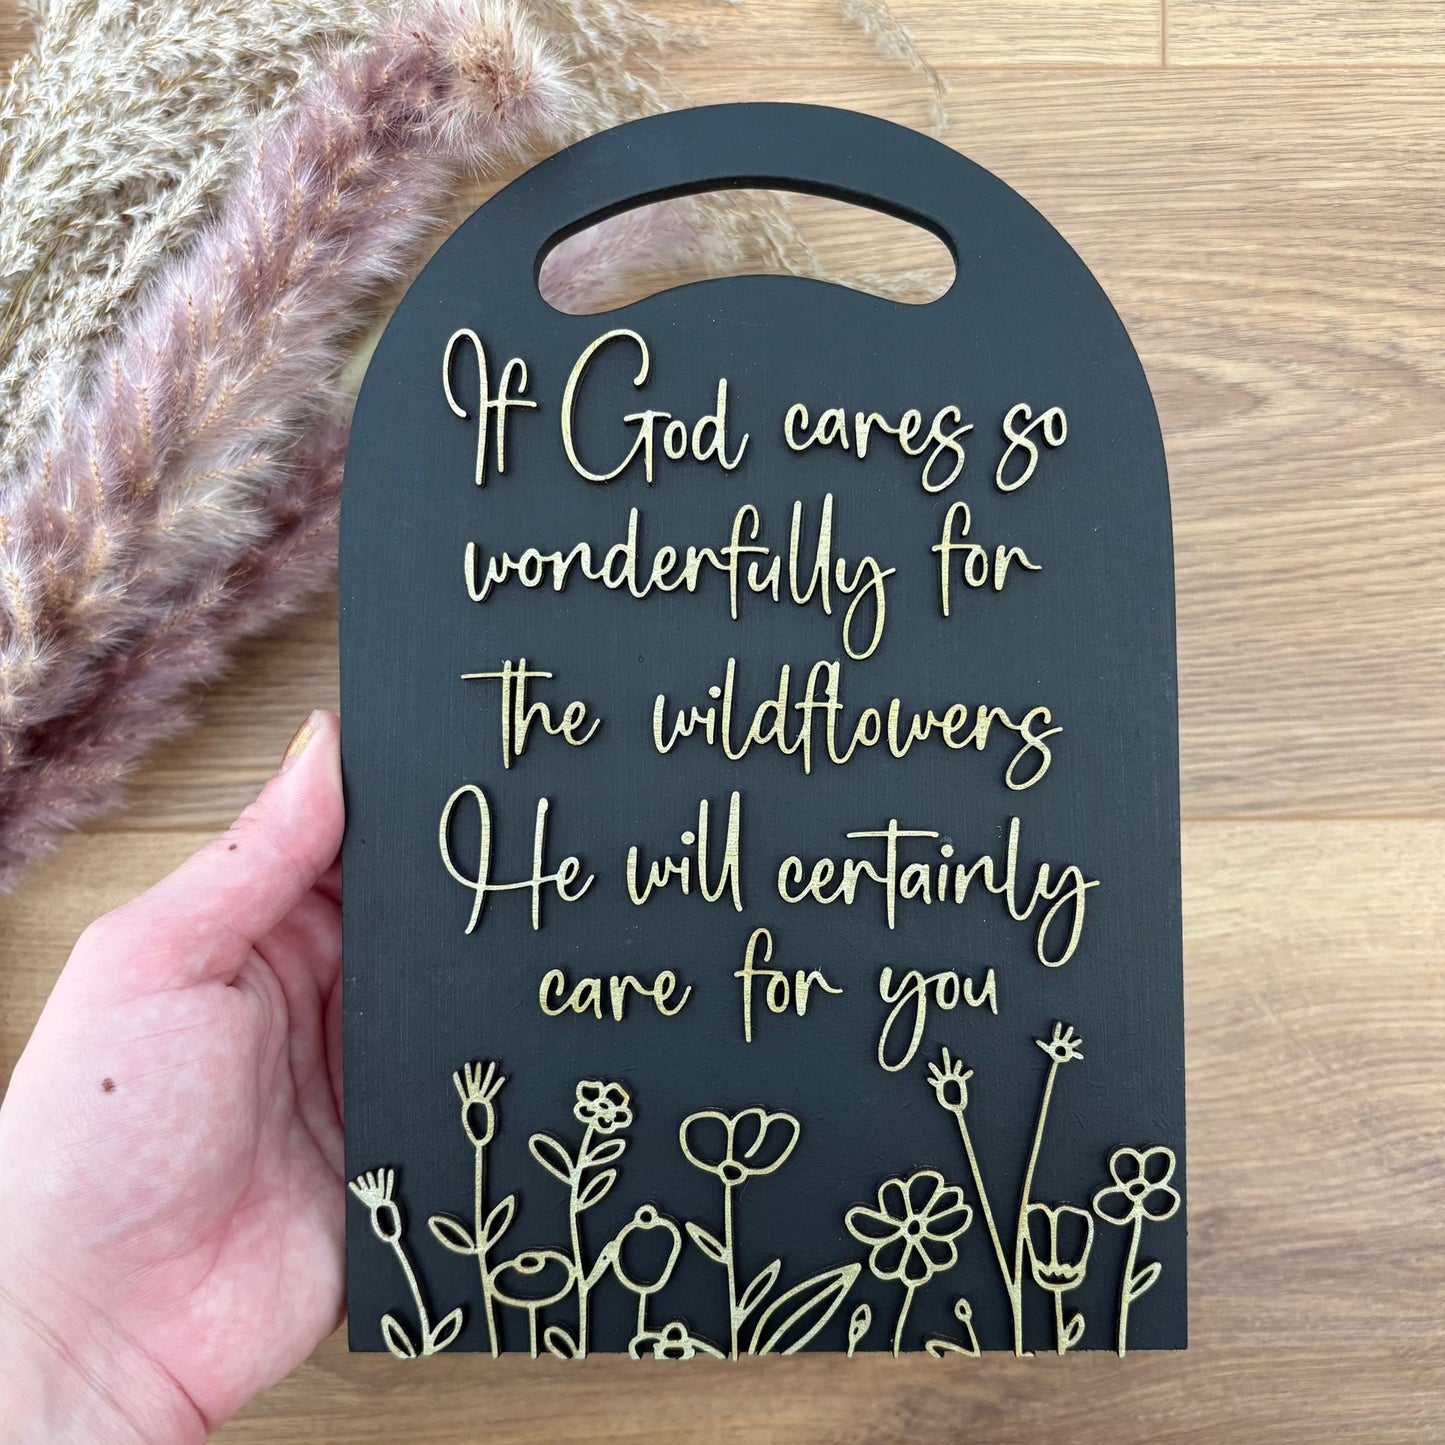 If God cares so
wonderfully for
the wildflowers
He will certainly
care for you